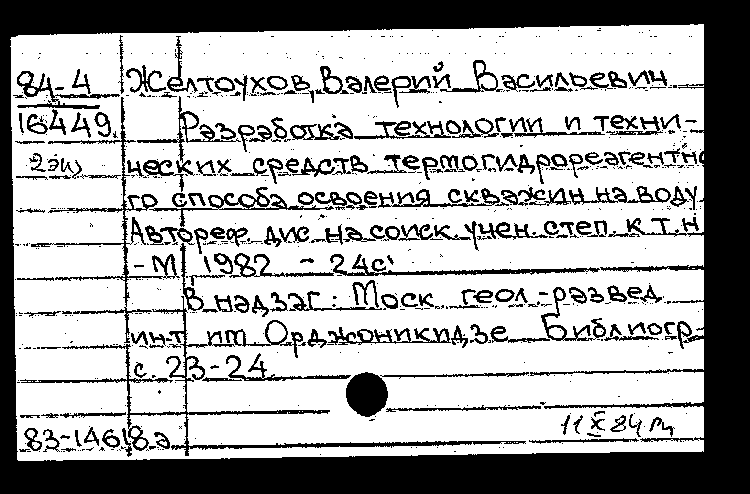 84-4 Желтоухов, Валерий Васильевич
16449. Разработка технологии и техни-
2 экз ческих средств термогидрореагентно
го способа освоения скважин на воду.
Автореф. дис. на соиск. учен. степ. к.т.н.
-М., 1982 - 24с.
В надзаг.: Моск геол.-развед
ин-т им Орджоникидзе Библиогр-
с. 23-24.
83-14618а 11 X 84